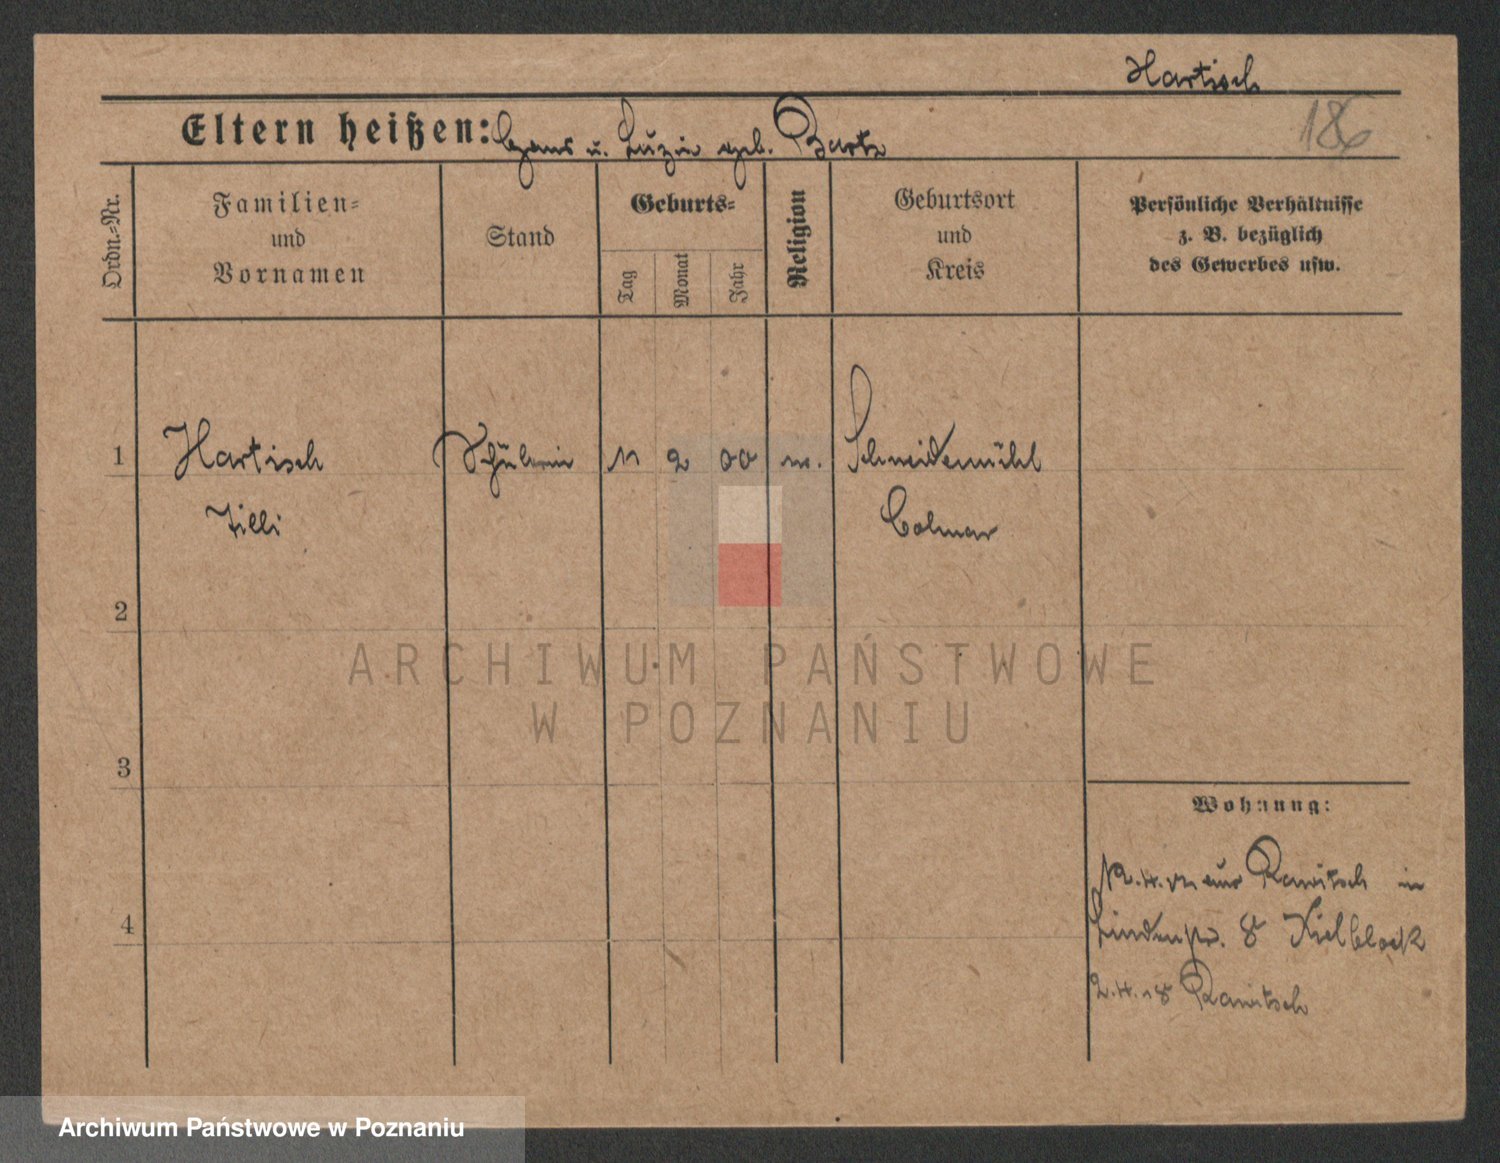 Hartisch
Eltern heißen: Hans u. Luzie geb. Bartz
186
Ordn.-Nr.
Familien-
und
Vornamen
Stand
Geburts-
Tag
Monat
Jahr
Religion
Geburtsort
und
Kreis
Persönliche Verhältnisse
z. B. bezüglich
des Gewerbes usw.
1
Hartisch
Schülerin
11
2
00
w.
Schneidemühl
Zilli
Colmar
2
ARCHIWUM PAŃSTWOWE
W POZNANIU
3
Wohnung:
12.4.17 aus Rawitsch in
4
Lindenstr. 8 Kielblock
2.4.18 Rawitsch
Archiwum Państwowe w Poznaniu